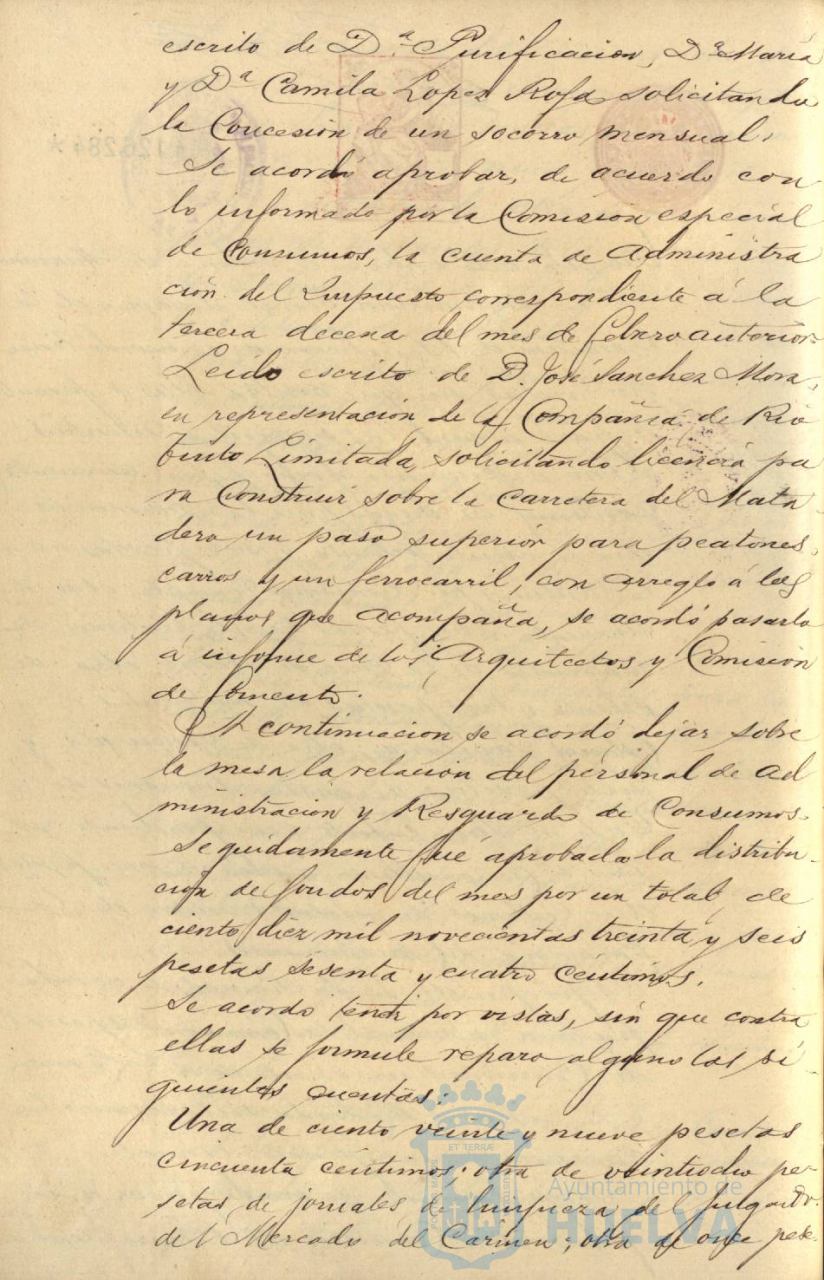 escrito de D.ª Purificacion, D.ª Maria
y Dª Camila Lopez Rofa solicitando
la Concesión de un socorro mensual.
Se acordó aprobar, de acuerdo con
lo informado por la Comisión especial
de Consumos, la cuenta de Administra
ción del Impuesto correspondiente á la
tercera decena del mes de febrero anterior.
Leido escrito de D. José Sanchez Mora,
en representación de la Compañia de Rio
tinto Limitada, solicitando licencia pa
ra Construir sobre la carretera del Mata
dero un paso superior para peatones,
carros y un ferrocarril, con arreglo á los
planos que acompaña, se acordó pasarlo
á informe de los Arquitectos y Comisión
de Fomento.
A continuacion se acordó dejar sobre
la mesa la relación del personal de Ad
ministracion y Resguardo de Consumos.
Seguidamente fué aprobada la distribu-
ción de fondos del mes por un total de
ciento diez mil novecientas treinta y seis
pesetas sesenta y cuatro céntimos.
Se acordo tener por vistas, sin que contra
ellas se formule reparo alguno las si-
guientes cuentas:
Una de ciento veinte y nueve pesetas
cincuenta céntimos; otra de veintiocho pe-
setas de jornales de limpieza del
del Mercado del Carmen; otra de once pese-
126284 *
ET TERRAE
Ayuntamiento de
HUELVA